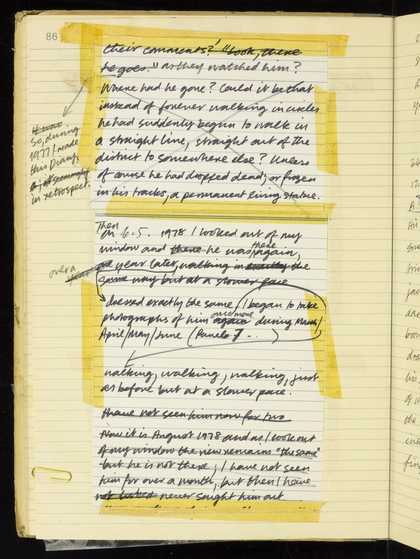 86
their comments?' "Look, there
he goes." as they watched him?
Where had he gone? Could it be that
instead of forever walking in circles
he had suddenly begun to walk in
a straight line, straight out of the
district to somewhere else? Unless
of course he had dropped dead, or frozen
in his tracks, a permanent living statue.
It was
So, during
1977 I made
this Diary,
in retrospect.
Then
on 6.5. 1978 I looked out of my
window and there he was again,
there
over a
year later, walking in exactly the
same way but at a slower pace
dressed exactly the same / I began to take
photographs of him again during March/
once more
April/May/June (Panels 7 - . . )
walking, walking, walking, just
as before but at a slower pace.
I have not seen him now for two
Now it is August 1978 and as I look out
of my window the view remains "the same"
but he is not there, I have not seen
him for over a month, but then I have
never sought him out